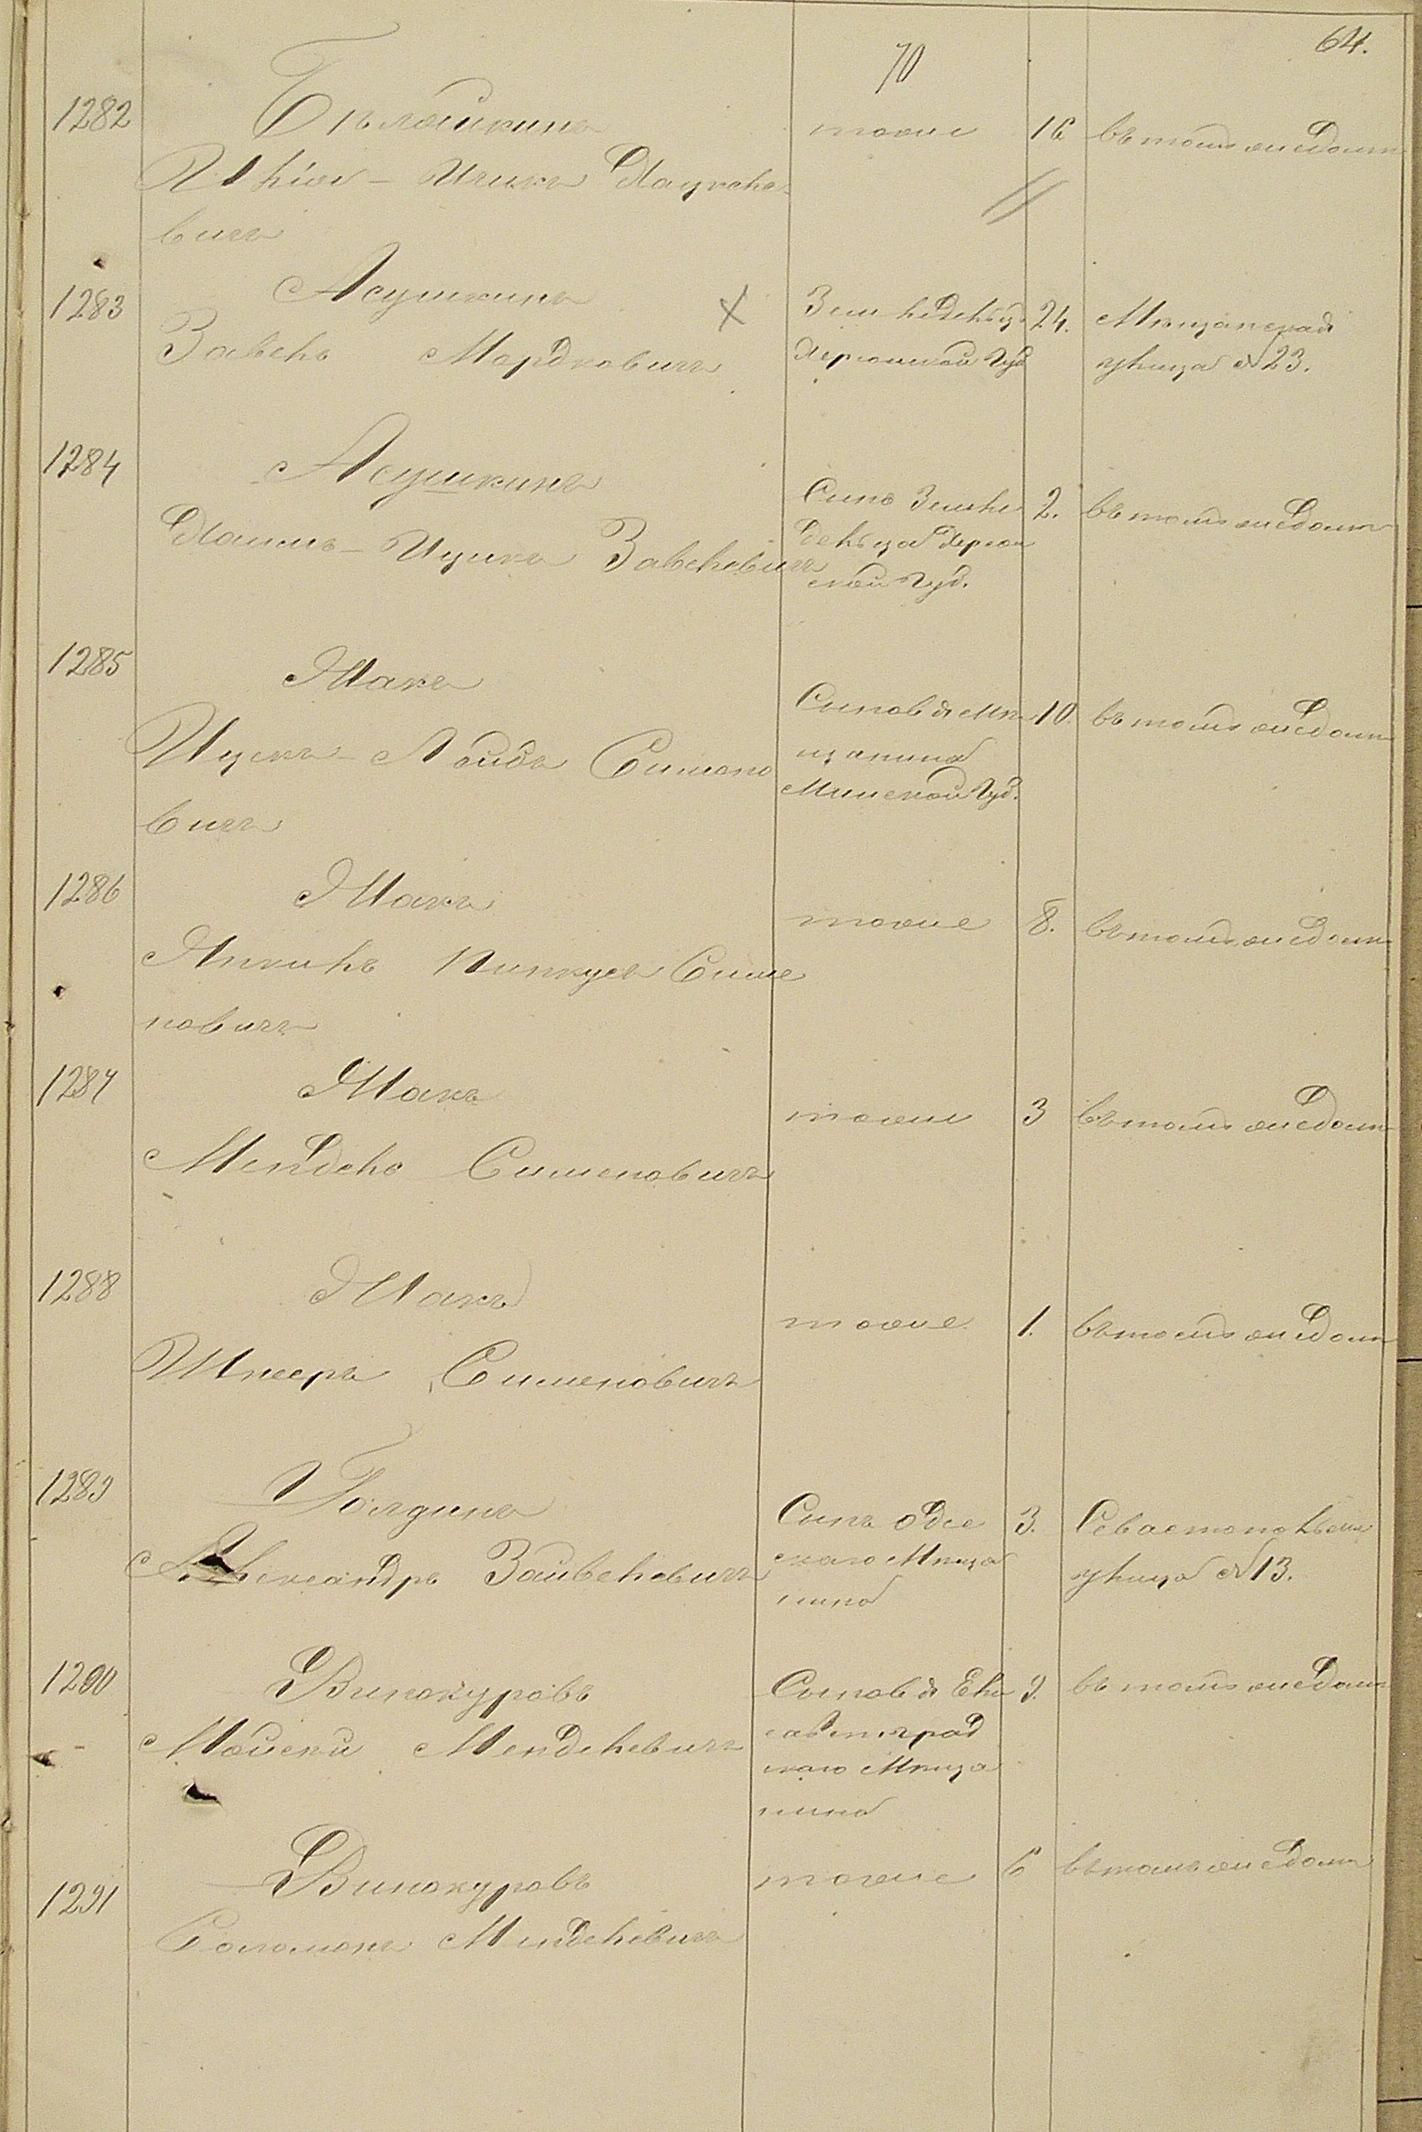 64.
70
1282
Бѣлошкинъ
тоже
16
въ томъ же домѣ
Ицикъ
вичъ
1283
Асушкинъ
Завель Мордковичъ
Землѣделецъ
Херсонской Губ
24.
Мѣщанская
улица №23.
1284
Асушкинъ
Хаимъ-Ицикъ Завелевичъ
Сынъ Землѣ
дельца Херсон
ской Губ.
2.
въ томъ же домѣ
1285
Макъ
Ицекъ-Лейба Симоно
вичъ
Сыновья Мѣ
щанина
Минской Губ.
10.
въ томъ же домѣ
1286
Макъ
Янкель Пинкусъ Симе
новичъ
тоже
8.
въ томъ же домѣ
1287
Макъ
Мендель Сименовичъ
тоже
3
въ томъ же домѣ
1288
Макъ
Шнееръ Сименовичъ
тоже
1.
въ томъ же домѣ
1289
Голдинъ
Александръ Зайвелевичъ
Сынъ Одес
скаго Мѣща
нина
3.
улица №13.
1290
Винокуровъ
Мойсей Менделевичъ
Сыновья Ели
саветград
скаго Мѣща
нина
9.
въ томъ же домѣ
1291
Винокуровъ
Соломонъ Менделевичъ
тоже
6
въ томъ же домѣ